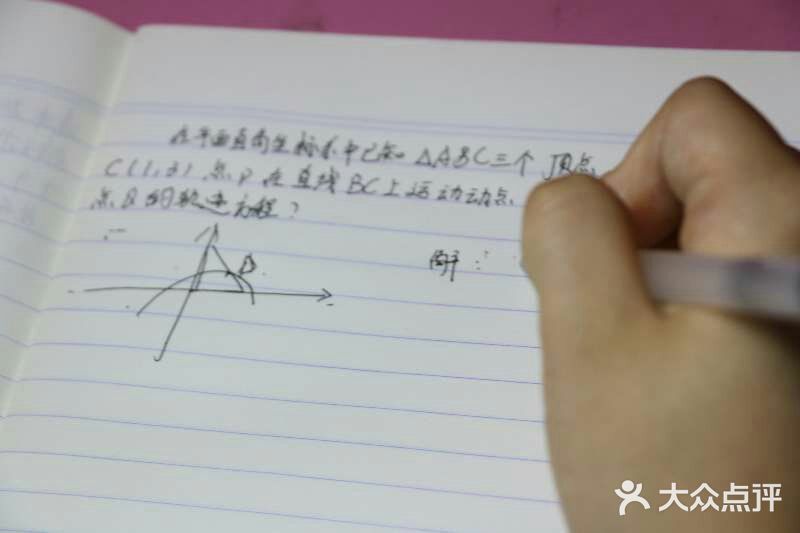 在平面直角坐标系中已知 △ABC三个 顶点
C(1,3) 点 P 在直线 BC上运动动点
点 Q 的轨迹方程?
解:
大众点评